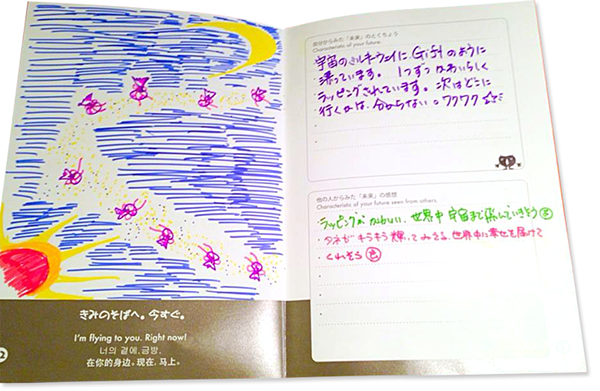 2
きみのそばへ。今すぐ。
I'm flying to you. Right now!
너의 곁에, 금방.
在你的身边。现在. 马上。
自分からみた「未来」のとくちょう
Characteristic of your future.
宇宙のミルキーウェイに Gift のように
漂っています。 1つずつ かわいらしく
ラッピングされています。 次はどこに
行くかは、分からない。ワクワク
他の人からみた「未来」の感想
Characteristic of your future seen from others.
ラッピングが かわいい、世界中 宇宙まで飛んでいきそう
・タネが キラキラ 輝いて みえる、世界中に幸せを届けて
くれそう